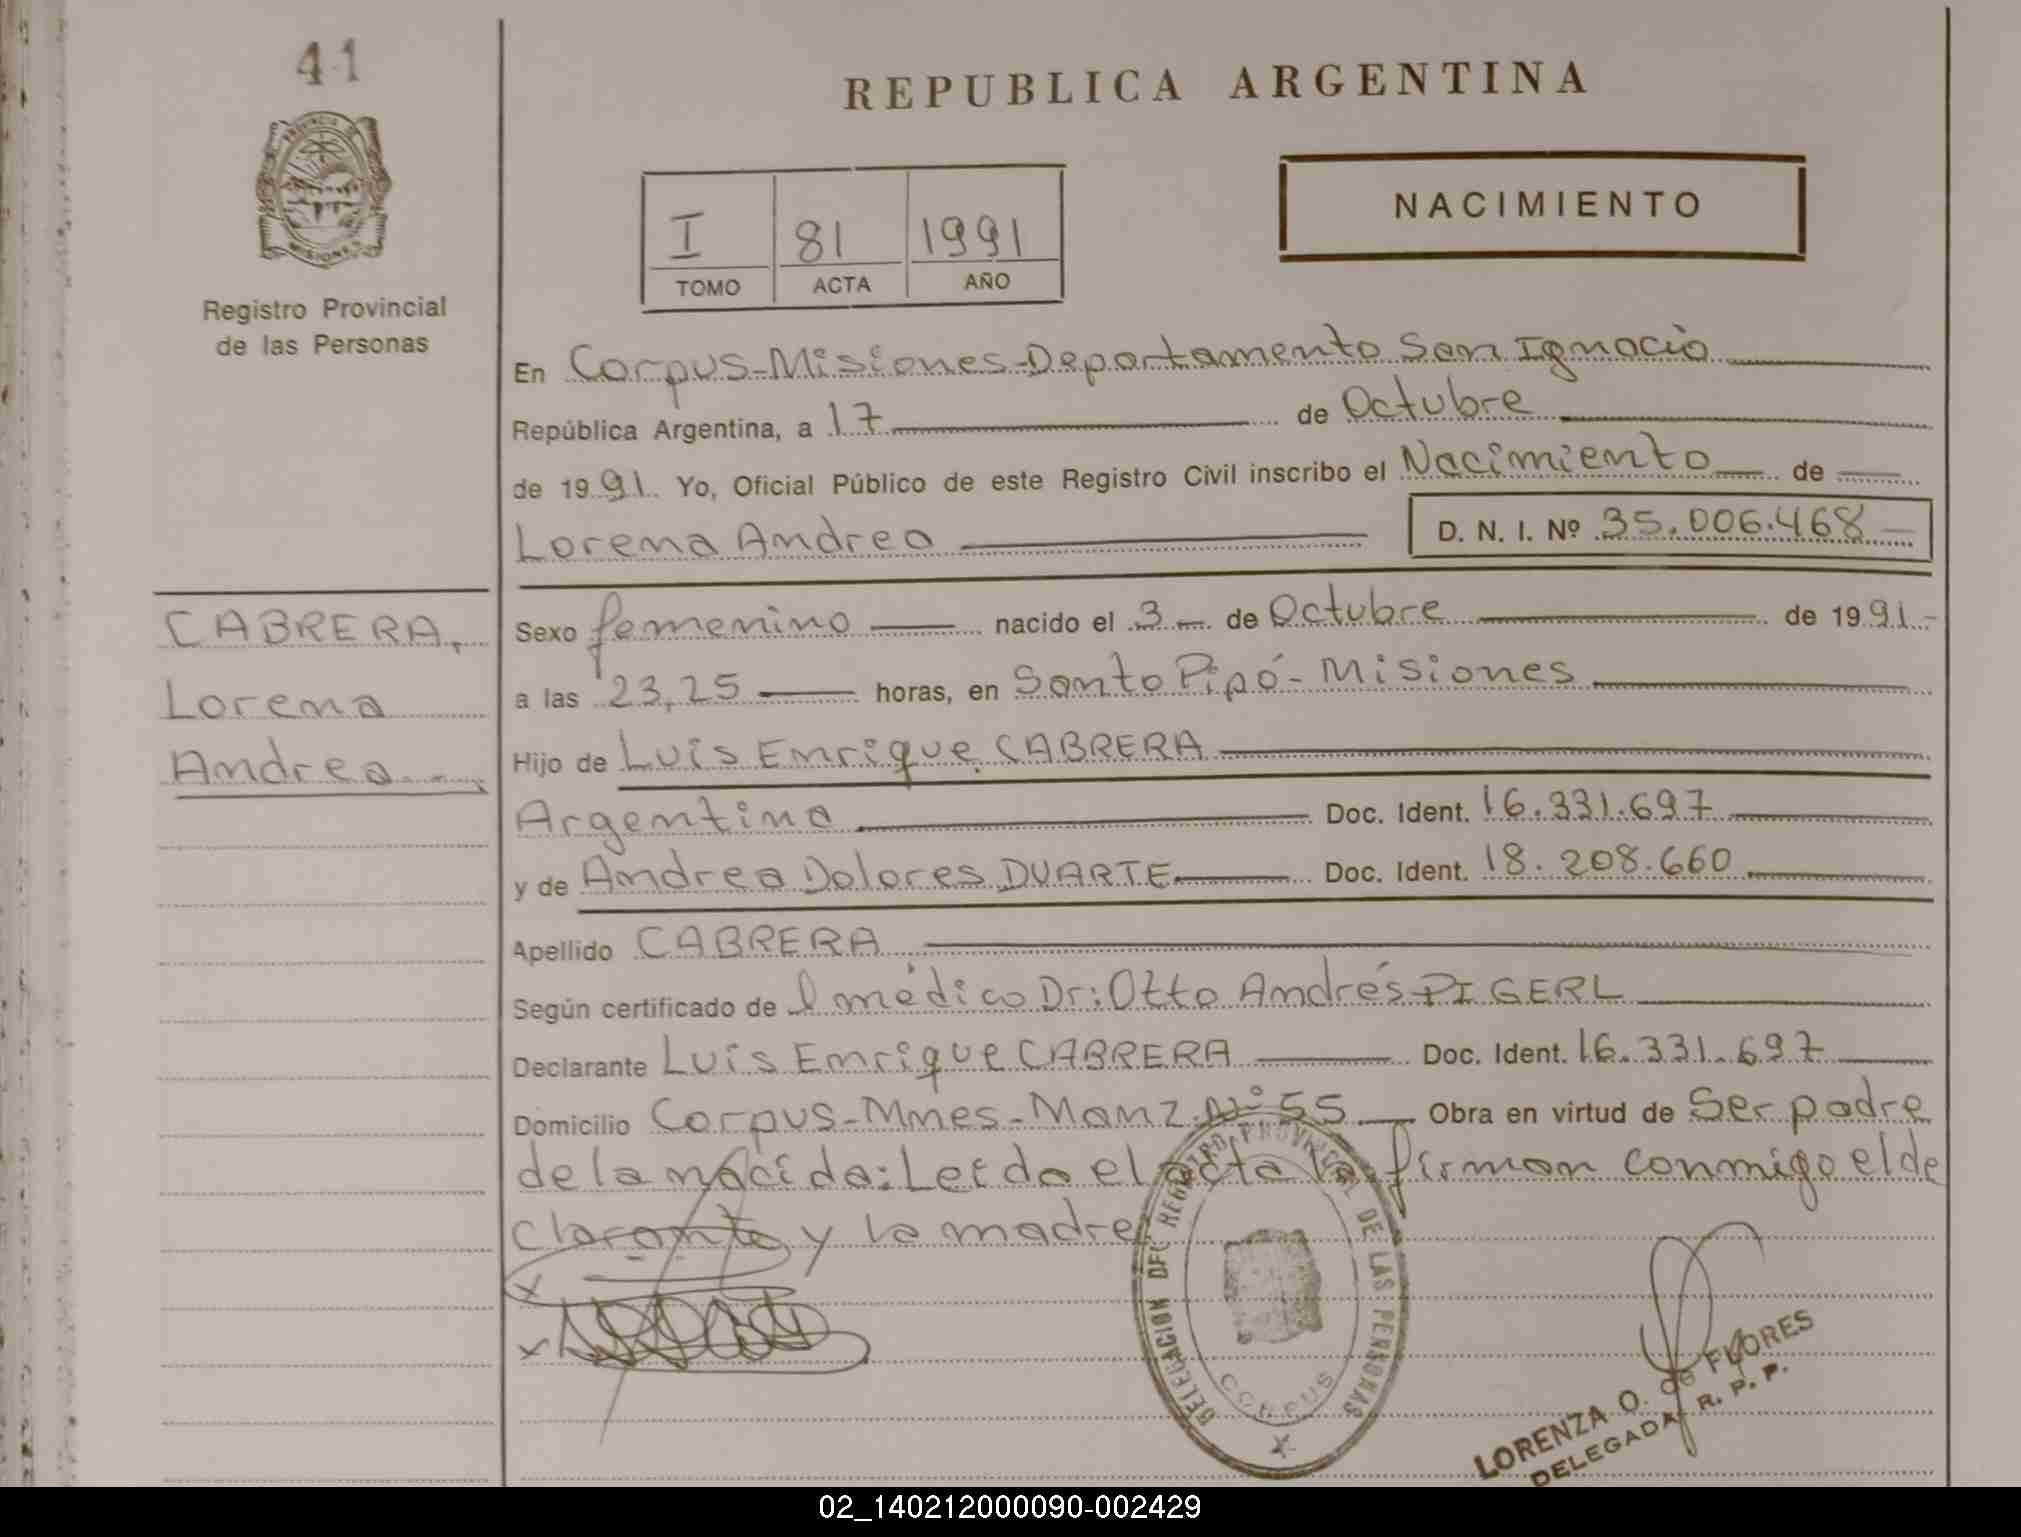 41
REPUBLICA ARGENTINA
PROVINCIA DE
MISIONES
Registro Provincial
de las Personas
I 81 1991
TOMO ACTA AÑO
NACIMIENTO
En Corpus-Misiones-Departamento San Ignacio
República Argentina, a 17 de Octubre
de 1991. Yo, Oficial Público de este Registro Civil inscribo el Nacimiento de
Lorena Andrea D. N. I. Nº 35.006.468
CABRERA,
Lorena
Andrea
Sexo femenino nacido el 3 de Octubre de 1991.-
a las 23,25 horas, en Santo Pipó-Misiones
Hijo de Luis Enrique CABRERA
Argentina Doc. Ident. 16.331.697
y de Andrea Dolores DUARTE Doc. Ident. 18.208.660
Apellido CABRERA
Según certificado de l médico Dr: Otto Andrés PIGERL
Declarante Luis Enrique CABRERA Doc. Ident. 16.331.697
Domicilio Corpus-Mnes-Manz.Nº55 Obra en virtud de Ser padre
de la nacida: Leido el acta la firman conmigo el de
clarante y la madre
DELEGACION DEL REGISTRO PROVINCIAL DE LAS PERSONAS
CORPUS
LORENZA O. de FLORES
DELEGADA R. P. P.
02_140212000090-002429